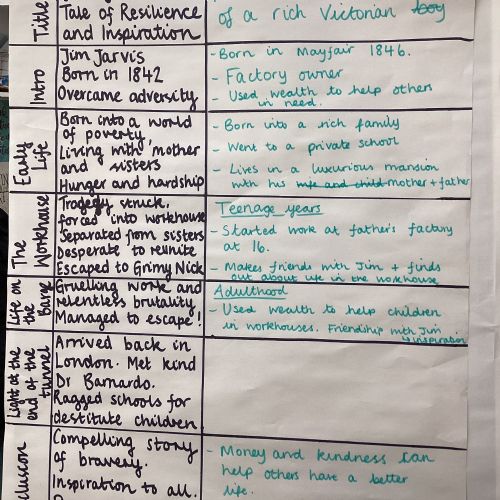 Title
Tale of Resilience
and Inspiration
of a rich Victorian boy
Intro
Jim Jarvis
Born in 1842
Overcame adversity
- Born in Mayfair 1846.
- Factory owner
- Used wealth to help others
in need.
Early
Life
Born into a world
of poverty
Living with mother
and sisters
Hunger and hardship
- Born into a rich family
- Went to a private school
- Lives in a luxurious mansion
with his wife and child mother + father
The
Workhouse
Tragedy struck,
forced into workhouse
Separated from sisters
Desperate to reunite
Escaped to Grimy Nick
Teenage years
- Started work at father's factory
at 16.
- Makes friends with Jim + finds
out about life in the workhouse
Life on
the
Barge
Gruelling work and
relentless brutality
Managed to escape!
Adulthood
- Used wealth to help children
in workhouses. Friendship with Jim
inspiration
Light at the
end of the
tunnel
Arrived back in
London. Met kind
Dr Barnardo.
Ragged schools for
destitute children
clusion
Compelling story
of bravery.
Inspiration to all.
- Money and kindness can
help others have a better
life.